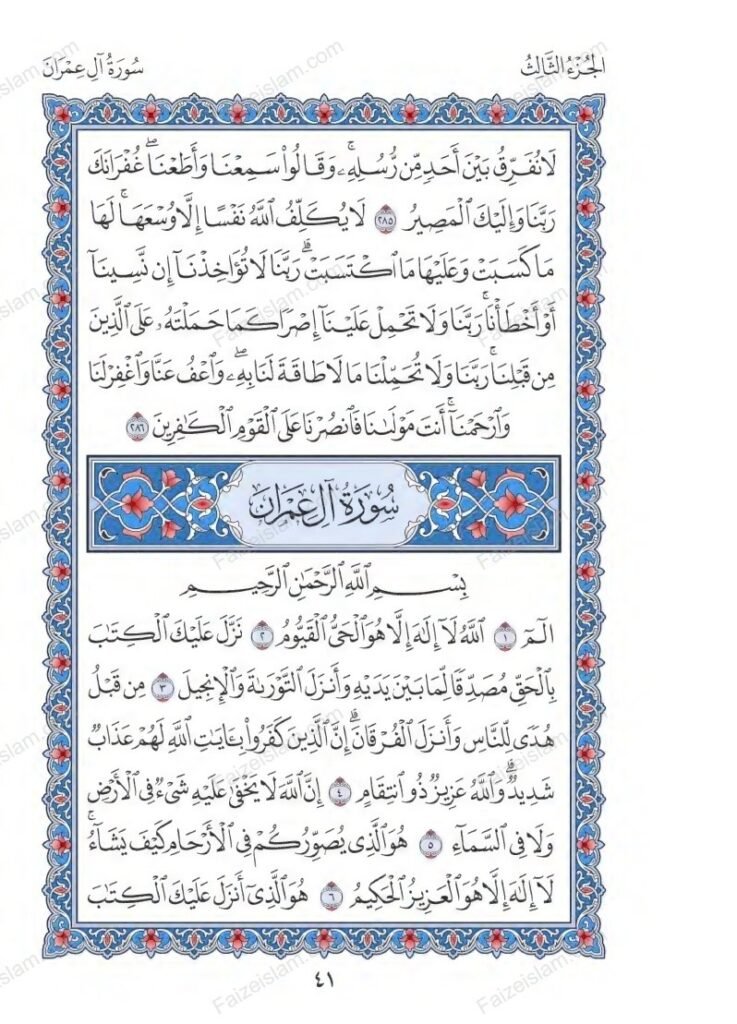 الجُزءُ الثَّالِثُ
سُورَةُ آلِ عِمْرَانَ
لَا نُفَرِّقُ بَيْنَ أَحَدٍ مِّن رُّسُلِهِۦۚ وَقَالُوا۟ سَمِعْنَا وَأَطَعْنَاۖ غُفْرَانَكَ
رَبَّنَا وَإِلَيْكَ الْمَصِيرُ ٢٨٥ لَا يُكَلِّفُ اللَّهُ نَفْسًا إِلَّا وُسْعَهَاۚ لَهَا
مَا كَسَبَتْ وَعَلَيْهَا مَا اكْتَسَبَتْۗ رَبَّنَا لَا تُؤَاخِذْنَآ إِن نَّسِينَآ
أَوْ أَخْطَأْنَاۚ رَبَّنَا وَلَا تَحْمِلْ عَلَيْنَآ إِصْرًا كَمَا حَمَلْتَهُۥ عَلَى الَّذِينَ
مِن قَبْلِنَاۚ رَبَّنَا وَلَا تُحَمِّلْنَا مَا لَا طَاقَةَ لَنَا بِهِۦۖ وَاعْفُ عَنَّا وَاغْفِرْ لَنَا
وَارْحَمْنَآۚ أَنتَ مَوْلَىٰنَا فَانصُرْنَا عَلَى الْقَوْمِ الْكَٰفِرِينَ ٢٨٦
سُورَةُ آلِ عِمْرَانَ
بِسْمِ اللَّهِ الرَّحْمَٰنِ الرَّحِيمِ
الٓمٓ ١ اللَّهُ لَآ إِلَٰهَ إِلَّا هُوَ الْحَيُّ الْقَيُّومُ ٢ نَزَّلَ عَلَيْكَ الْكِتَٰبَ
بِالْحَقِّ مُصَدِّقًا لِّمَا بَيْنَ يَدَيْهِ وَأَنزَلَ التَّوْرَىٰةَ وَالْإِنجِيلَ ٣ مِن قَبْلُ
هُدًى لِّلنَّاسِ وَأَنزَلَ الْفُرْقَانَۗ إِنَّ الَّذِينَ كَفَرُوا۟ بِـَٔايَٰتِ اللَّهِ لَهُمْ عَذَابٌ
شَدِيدٌۗ وَاللَّهُ عَزِيزٌ ذُو انتِقَامٍ ٤ إِنَّ اللَّهَ لَا يَخْفَىٰ عَلَيْهِ شَيْءٌ فِي الْأَرْضِ
وَلَا فِي السَّمَآءِ ٥ هُوَ الَّذِي يُصَوِّرُكُمْ فِي الْأَرْحَامِ كَيْفَ يَشَآءُۚ
لَآ إِلَٰهَ إِلَّا هُوَ الْعَزِيزُ الْحَكِيمُ ٦ هُوَ الَّذِيٓ أَنزَلَ عَلَيْكَ الْكِتَٰبَ
٤١
Faizeislam.com